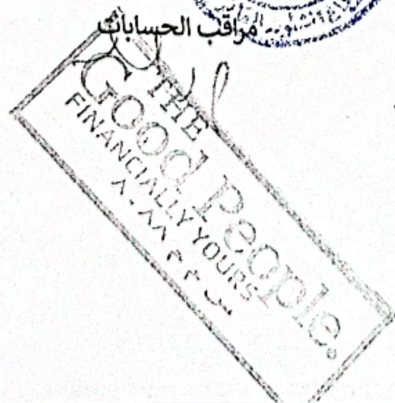 مراقب الحسابات
THE
GOOD People.
FINANCIALLY YOURS